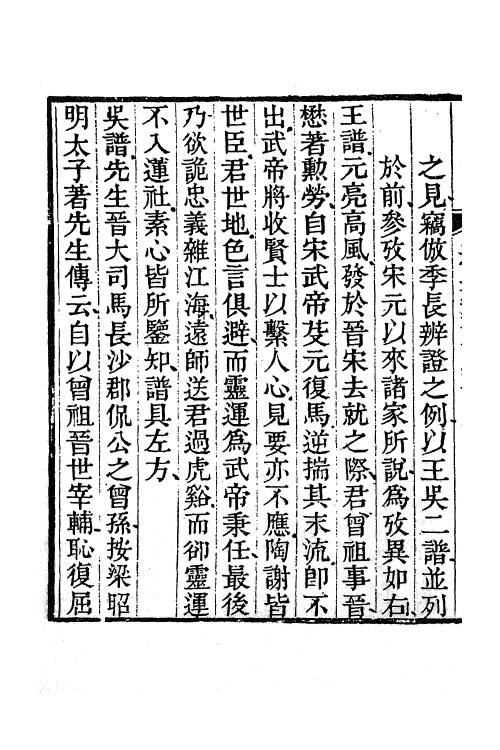 之見竊倣季長辨證之例以王吳二譜並列
於前參攷宋元以來諸家所說爲攷異如右
王譜元亮高風發於晉宋去就之際君曾祖事晉
懋著勳勞自宋武帝芟元復馬逆揣其末流卽不
出武帝將收賢士以繫人心見要亦不應陶謝皆
世臣君世地色言俱避而靈運爲武帝秉任最後
乃欲詭忠義雜江海遠師送君過虎谿而卻靈運
不入蓮社素心皆所鑒知譜具左方
吳譜先生晉大司馬長沙郡侃公之曾孫按梁昭
明太子著先生傳云自以曾祖晉世宰輔恥復屈